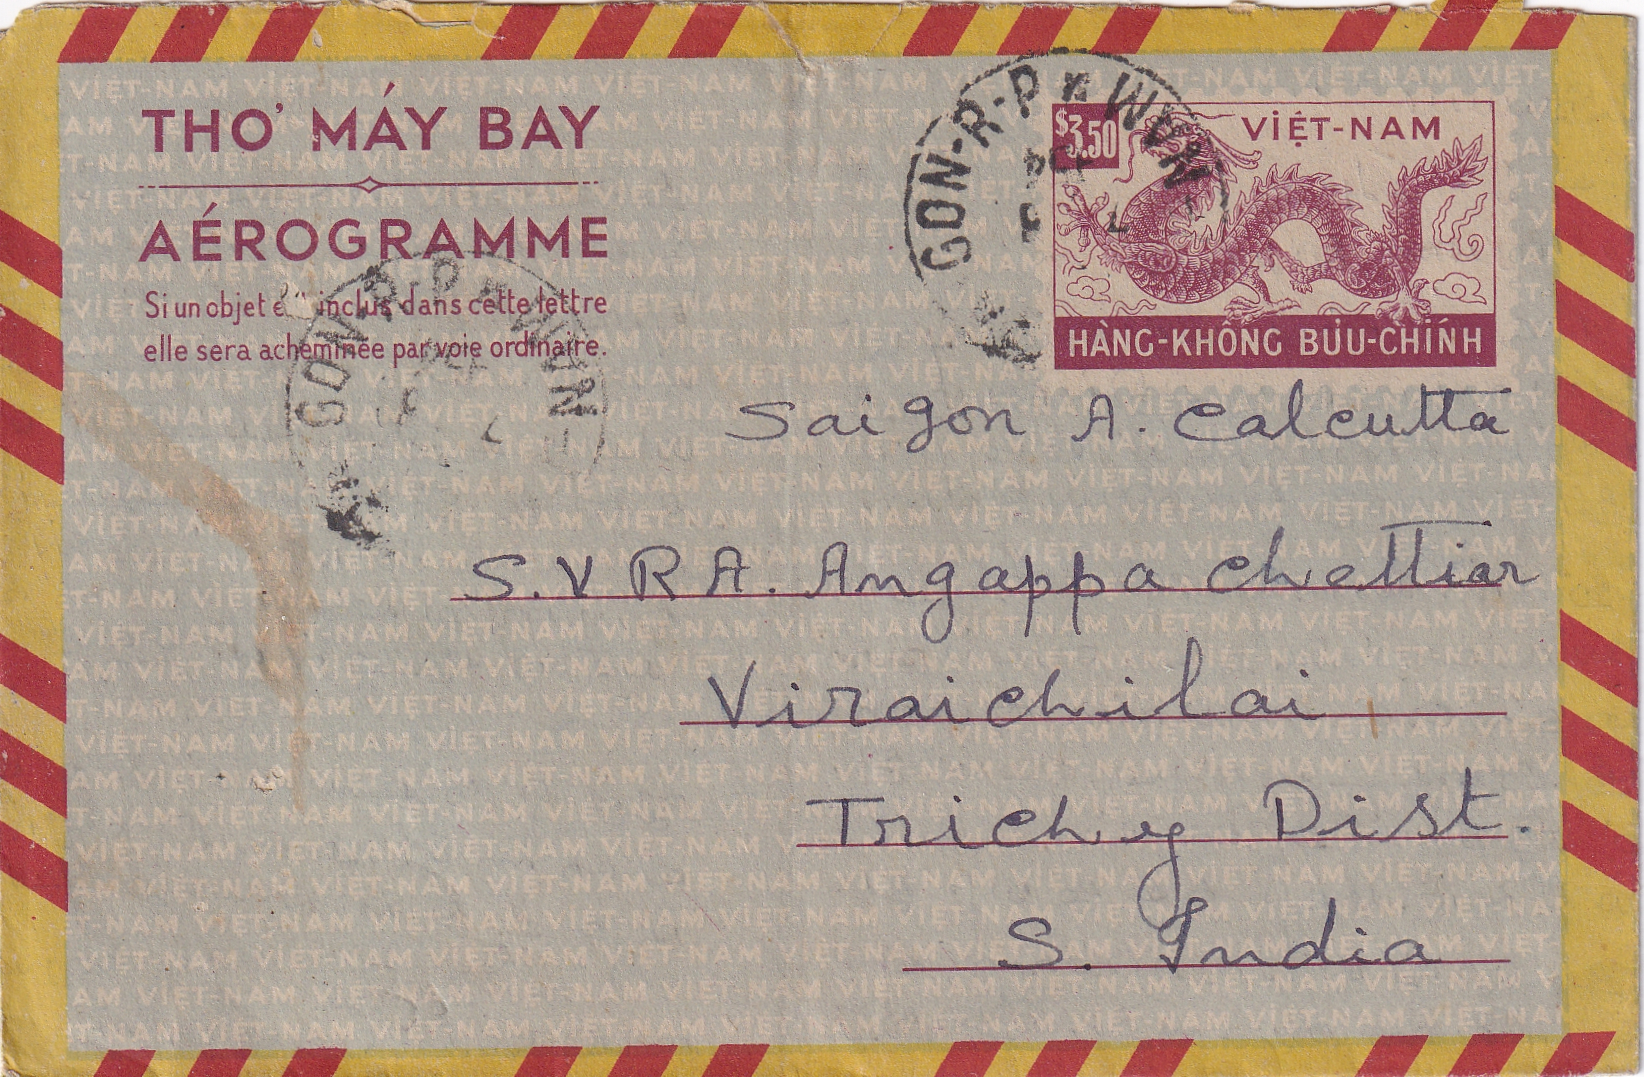 THƠ MÁY BAY
AÉROGRAMME
Si un objet inclus dans cette lettre
elle sera acheminée par voie ordinaire.
$3.50
VIỆT-NAM
HÀNG-KHÔNG BƯU-CHÍNH
GON-R-P
GON-R-P
Saigon A. Calcutta
S.V R A. Angappa Chettiar
Viraichilai
Trichy Dist.
S. India